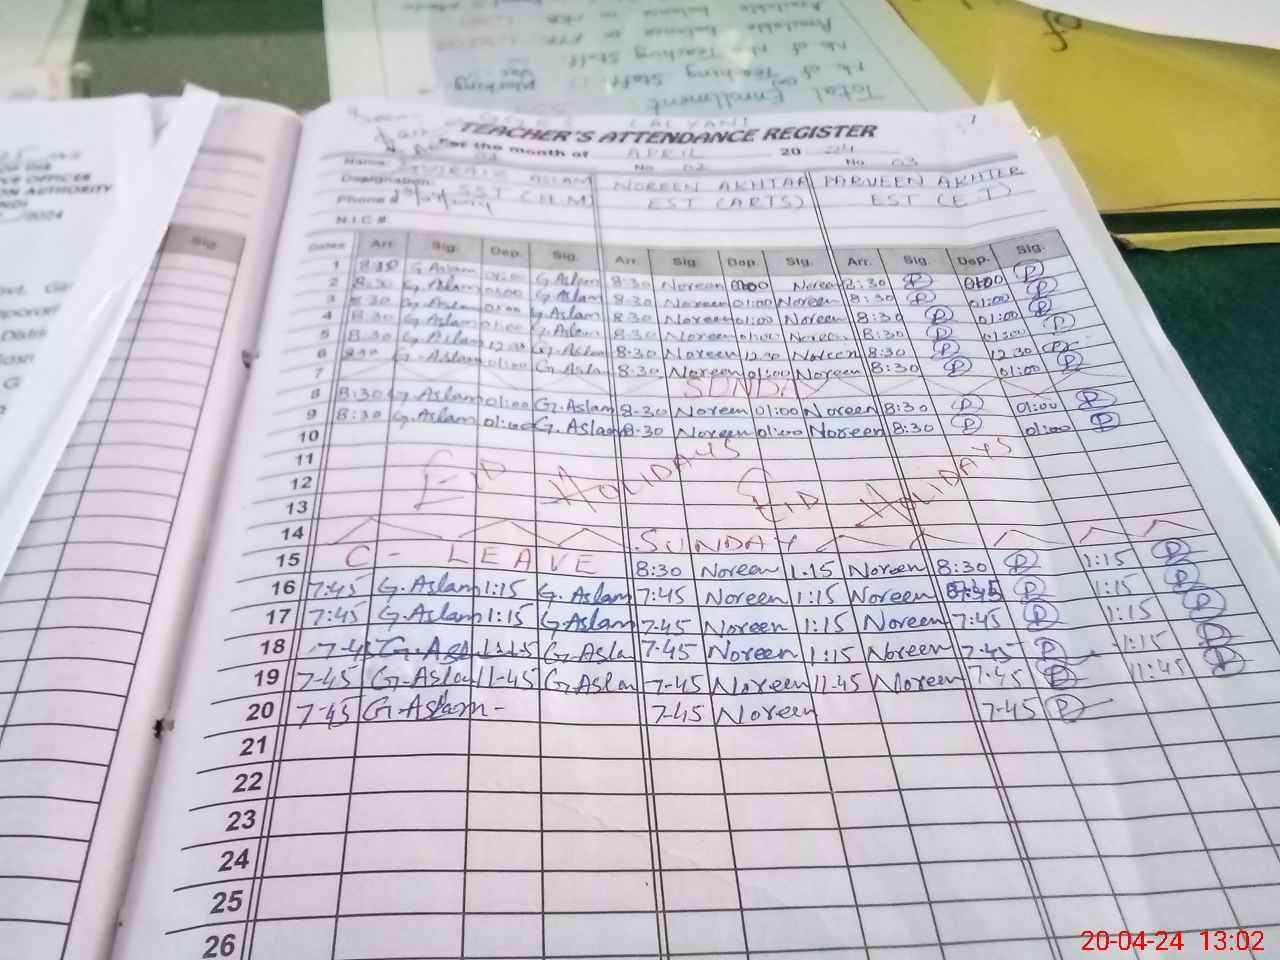 Total Enrollment
No. of Teaching Staff
No. of N. Teaching Staff
Available balance in
Available balance in
TEACHER'S ATTENDANCE REGISTER
For the month of APRIL 20 24
Name: ASLAM No. 02 No. 03
Designation: SST (H.M) NOREEN AKHTAR PARVEEN AKHTER
Phone # EST (ARTS) EST (E.T)
N.I.C #
Sig.
Dates Arr. Sig. Dep. Sig. Arr. Sig. Dep. Sig. Arr. Sig. Dep. Sig.
1 G.Aslam G.Aslam 8:30 Noreen Noreen 8:30 P 01:00 P
2 8:30 G.Aslam 01:00 G.Aslam 8:30 Noreen 01:00 Noreen 8:30 P 01:00 P
3 8:30 G.Aslam 01:00 G.Aslam 8:30 Noreen 01:00 Noreen 8:30 P 01:00 P
4 8:30 G.Aslam 01:00 G.Aslam 8:30 Noreen 01:00 Noreen 8:30 P 01:00 P
5 8:30 G.Aslam 12:30 G.Aslam 8:30 Noreen 12:30 Noreen 8:30 P 12:30 P
6 G.Aslam 01:00 G.Aslam 8:30 Noreen 01:00 Noreen 8:30 P 01:00 P
7 SUNDAY
8 8:30 G.Aslam 01:00 G.Aslam 8-30 Noreen 01:00 Noreen 8:30 P 01:00 P
9 8:30 G.Aslam 01:00 G.Aslam 8-30 Noreen 01:00 Noreen 8:30 P 01:00 P
10
11
12 EID HOLIDAYS EID HOLIDAYS
13
14 SUNDAY
15 C - LEAVE 8:30 Noreen 1.15 Noreen 8:30 P 1:15 P
16 7:45 G.Aslam 1:15 G.Aslam 7:45 Noreen 1:15 Noreen 07:45 P 1:15 P
17 7:45 G.Aslam 1:15 G.Aslam 7:45 Noreen 1:15 Noreen 7:45 P 1:15 P
18 7-45 G.Asla 1:15 G.Asla 7:45 Noreen 1:15 Noreen 7:45 P 1:15 P
19 7-45 G.Aslam 11-45 G.Aslam 7-45 Noreen 11-45 Noreen 7:45 P 11:45 P
20 7-45 G.Aslam - 7-45 Noreen 7-45 P
21
22
23
24
25
26
20-04-24 13:02